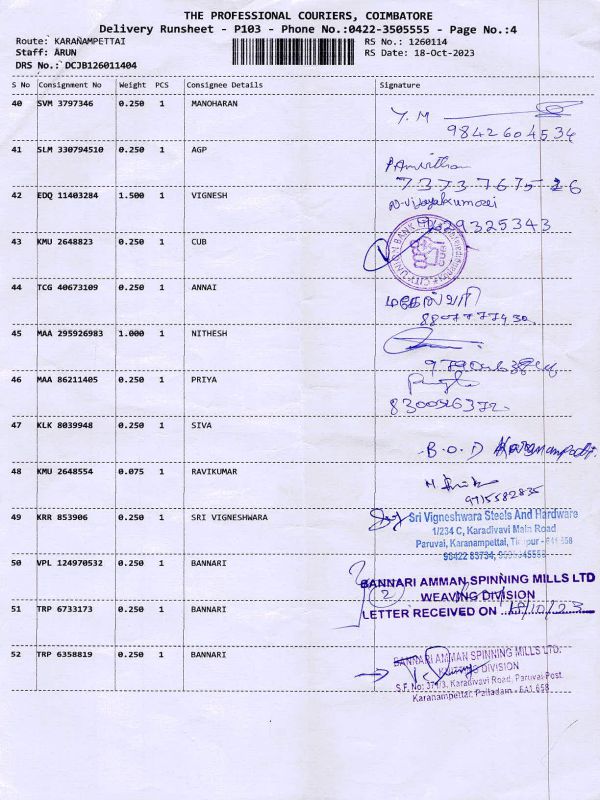 THE PROFESSIONAL COURIERS, COIMBATORE
Delivery Runsheet - P103 - Phone No.:0422-3505555 - Page No.:4
Route: KARANAMPETTAI RS No.: 1260114
Staff: ARUN RS Date: 18-Oct-2023
DRS No.: DCJB126011404
S No Consignment No Weight PCS Consignee Details Signature
40 SVM 3797346 0.250 1 MANOHARAN
Y. M
9842604534
41 SLM 330794510 0.250 1 AGP
7373767526
42 EDQ 11403284 1.500 1 VIGNESH
29325343
43 KMU 2648823 0.250 1 CUB
CITY UNION BANK
44 TCG 40673109 0.250 1 ANNAI
மகேஸ்வரி
8807777430
45 MAA 295926983 1.000 1 NITHESH
46 MAA 86211405 0.250 1 PRIYA
8300526372
47 KLK 8039948 0.250 1 SIVA
B.O.D
48 KMU 2648554 0.075 1 RAVIKUMAR
9715582835
49 KRR 853906 0.250 1 SRI VIGNESHWARA
Sri Vigneshwara Steels And Hardware
1/234 C, Karadivavi Main Road
Paruvai, Karanampettai, Tirupur - 641 658
98422 83734,
50 VPL 124970532 0.250 1 BANNARI
BANNARI AMMAN SPINNING MILLS LTD
WEAVING DIVISION
51 TRP 6733173 0.250 1 BANNARI
LETTER RECEIVED ON 18/10/23
52 TRP 6358819 0.250 1 BANNARI
BANNARI AMMAN SPINNING MILLS LTD.
KNITTING DIVISION
S.F. No: 371/3, Karadivavi Road, Paruvai Post
Karanampettai, Palladam - 641 658